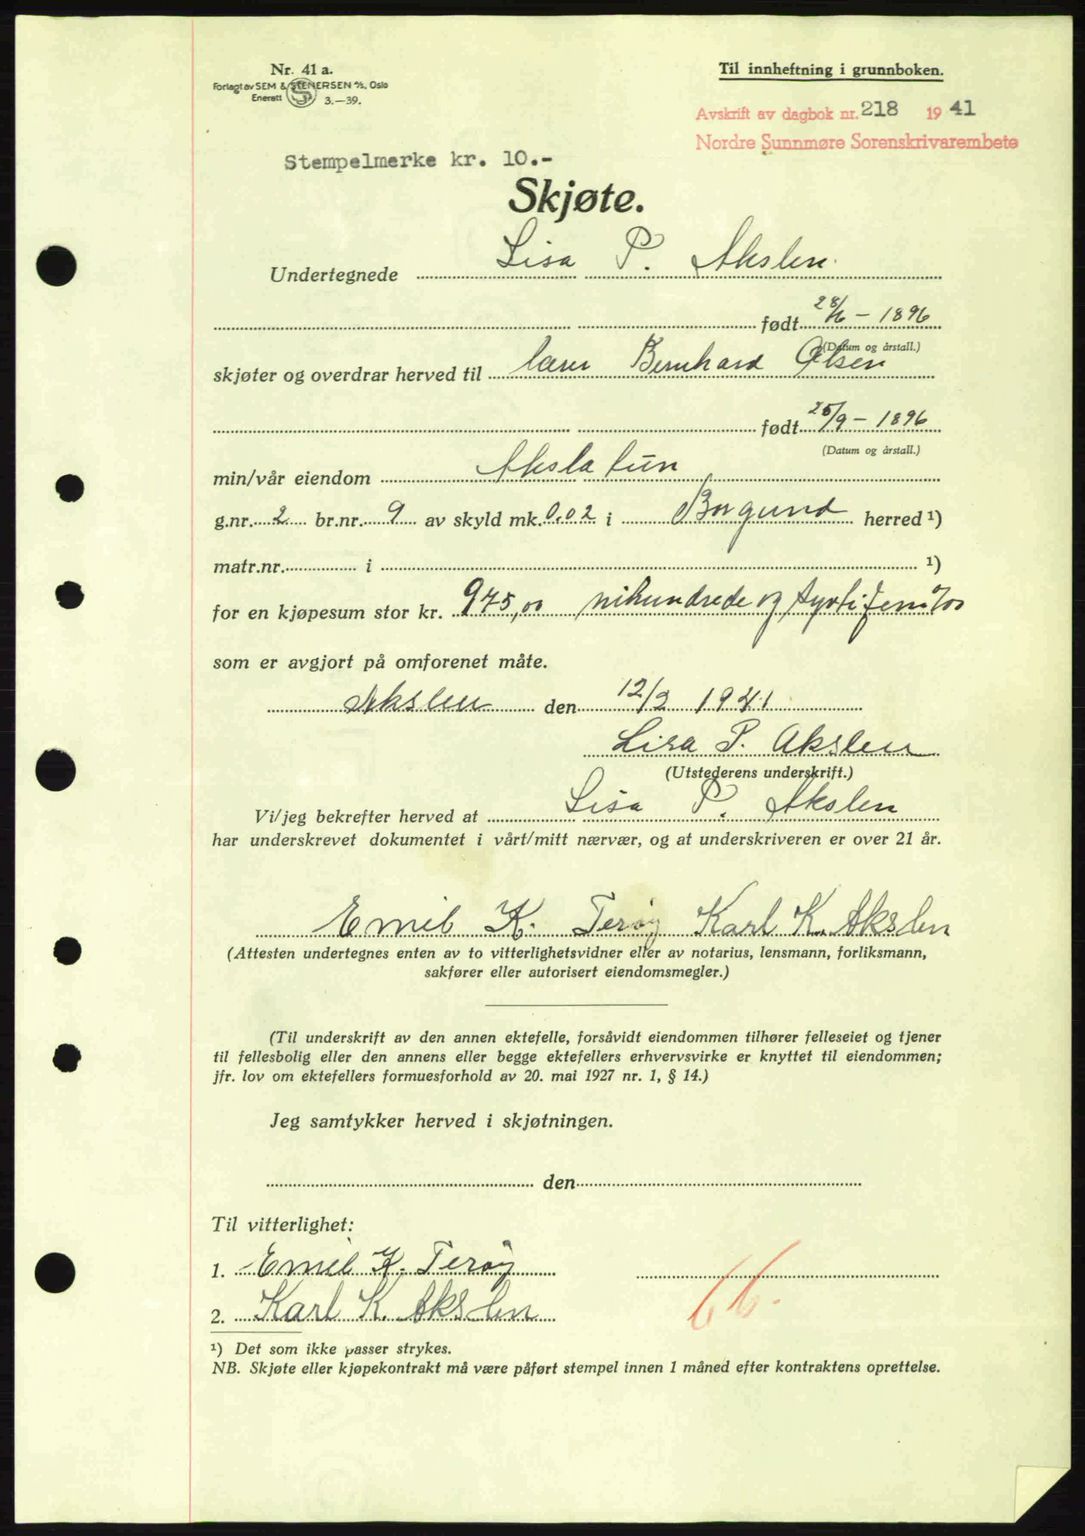 Nr. 41 a.
Forlagt av SEM & STENERSEN A/S, Oslo
Enerett 3.—39.
Til innheftning i grunnboken.
Avskrift av dagbok nr. 218 1941
Nordre Sunnmøre Sorenskrivarembete
Stempelmerke kr. 10.-
Skjøte.
Undertegnede Lisa P. Akslen
født 28/6 – 1896
(Datum og årstall.)
skjøter og overdrar herved til lærer Bernhard Olsen
født 25/9 – 1896
(Datum og årstall.)
min/vår eiendom Akslatun
g.nr. 2 br.nr. 9 av skyld mk. 0.02 i Borgund herred ¹)
matr.nr. i ¹)
for en kjøpesum stor kr. 975,00 nihundrede og syttifem 0/00
som er avgjort på omforenet måte.
Akslen den 12/2 1941
Lisa P. Akslen
(Utstederens underskrift.)
Vi/jeg bekrefter herved at Lisa P. Akslen
har underskrevet dokumentet i vårt/mitt nærvær, og at underskriveren er over 21 år.
Emil K. Terøy Karl K. Akslen
(Attesten undertegnes enten av to vitterlighetsvidner eller av notarius, lensmann, forliksmann,
sakfører eller autorisert eiendomsmegler.)
(Til underskrift av den annen ektefelle, forsåvidt eiendommen tilhører felleseiet og tjener
til fellesbolig eller den annens eller begge ektefellers erhvervsvirke er knyttet til eiendommen;
jfr. lov om ektefellers formuesforhold av 20. mai 1927 nr. 1, § 14.)
Jeg samtykker herved i skjøtningen.
den
Til vitterlighet:
1. Emil K. Terøy
2. Karl K. Akslen
66.
¹) Det som ikke passer strykes.
NB. Skjøte eller kjøpekontrakt må være påført stempel innen 1 måned efter kontraktens oprettelse.